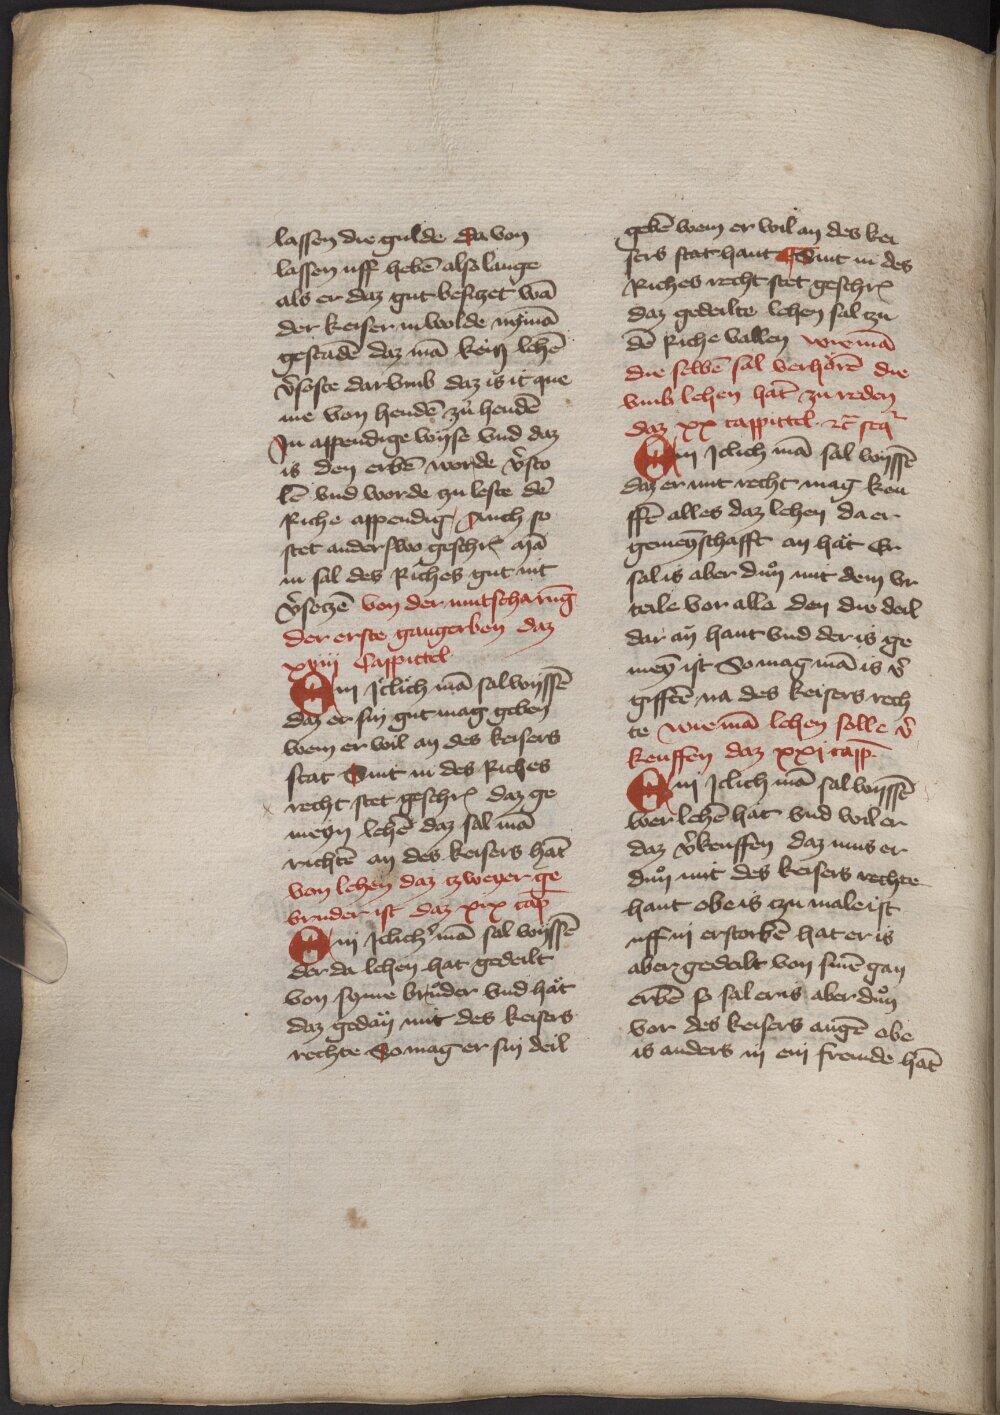 lassen die gulde da von
lassen uff hebē also lange
als er daz gut besitzet wā
der keiser in wolde nȳmā
gestadē daz mā kein lehē
v̄setze dar vmb daz is it que
me von hendē zu hendē
In appendige wyse vnd daz
is den erbē worde v̄sto
lē vnd worde zu leste dē
Riche appendig Auch so
stet anderswo geschrͥ mā
in sal des Riches gut nit
v̄setzē von der mutscharūg
der erste ganerben daz
xviij Cappittel
Ein Iclich mā sal wyssē
daz er sin gut mag geben
wem er wil an des keisers
stat Sint in des Riches
recht stet geschrͥ daz ge
meyn lehē daz sal mā
richtē an des keisers hāt
von lehen daz tzweyer ge
bruder ist daz xix cap̄
Ein Iclichˀ mā sal wyssē
der da lehen hat gedeilt
von syme bruder vnd hat
daz gedan mit des keisers
rechte So mag er sin deil
gebē wem er wil an des kei
sers stat hant Sint in des
Riches recht stet geschrͥ
daz gedeilte lehen sal zu
dē Riche vallen wie mā
die selbē sal verhorē die
vmb lehen hāt zu reden
daz xx cappittel
Ein Iclich mā sal wyssē
daz er mit recht mag keu
ffē alles daz lehen da er
gemeȳschafft an hat Er
sal is aber duͦn mit dem vr
teile vor alle den die deil
dar an hant vnd der is ge
meȳ ist So mag mā is v̄
gifftē na des keisers rech
te wie mā lehen solle v̄
keuffen daz xxi capp̄
Ein Iclich mā sal wyssē
wer lehē hat vnd wil er
daz v̄keuffen daz mus er
duͦn mit des keisers rechte
hant obe is tzu male ist
uff in erstorbē hat er is
aber gedeilt von sinē gan
erbē so sal er is aber duͦn
vor des keisers augē obe
is anders in ein fremde hāt